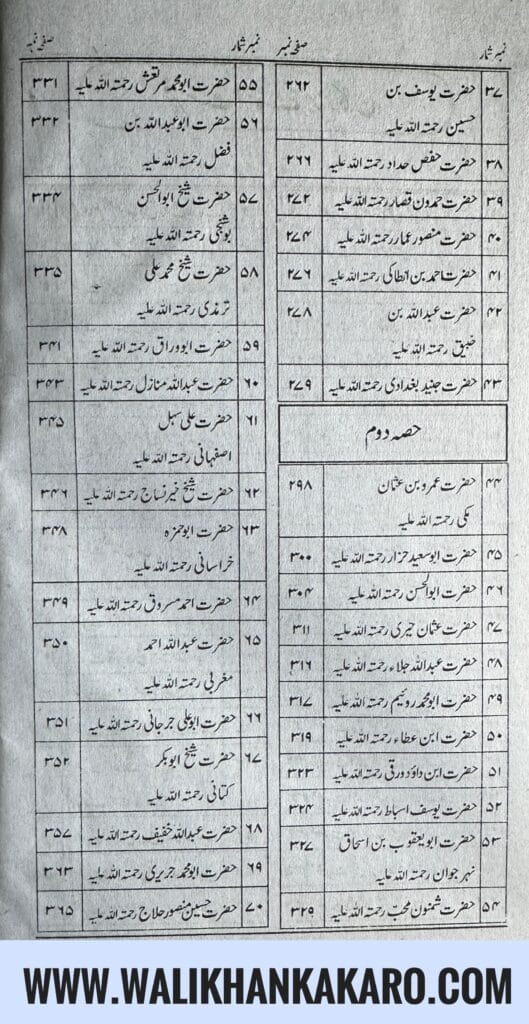 نمبر شمار صفحہ نمبر
۳۷ حضرت یوسف بن ۲۶۲
حسین رحمتہ اللہ علیہ
۳۸ حضرت حفص حداد رحمتہ اللہ علیہ ۲۶۶
۳۹ حضرت حمدون قصار رحمتہ اللہ علیہ ۲۷۲
۴۰ حضرت منصور عمار رحمتہ اللہ علیہ ۲۷۴
۴۱ حضرت احمد بن انطاکی رحمتہ اللہ علیہ ۲۷۶
۴۲ حضرت عبداللہ بن ۲۷۸
خبیق رحمتہ اللہ علیہ
۴۳ حضرت جنید بغدادی رحمتہ اللہ علیہ ۲۷۹
حصہ دوم
۴۴ حضرت عمرو بن عثمان ۲۹۸
مکی رحمتہ اللہ علیہ
۴۵ حضرت ابوسعید خزار رحمتہ اللہ علیہ ۳۰۰
۴۶ حضرت ابوالحسن رحمتہ اللہ علیہ ۳۰۴
۴۷ حضرت عثمان حیری رحمتہ اللہ علیہ ۳۱۱
۴۸ حضرت عبداللہ جلاء رحمتہ اللہ علیہ ۳۱۶
۴۹ حضرت ابومحمد روئیم رحمتہ اللہ علیہ ۳۱۷
۵۰ حضرت ابن عطاء رحمتہ اللہ علیہ ۳۱۹
۵۱ حضرت ابن داؤد ورقی رحمتہ اللہ علیہ ۳۲۳
۵۲ حضرت یوسف اسباط رحمتہ اللہ علیہ ۳۲۴
۵۳ حضرت ابویعقوب بن اسحاق ۳۲۷
نہر جوان رحمتہ اللہ علیہ
۵۴ حضرت شمنون محب رحمتہ اللہ علیہ ۳۲۹
نمبر شمار صفحہ نمبر
۵۵ حضرت ابومحمد مرتعش رحمتہ اللہ علیہ ۳۳۱
۵۶ حضرت ابو عبداللہ بن ۳۳۲
فضل رحمتہ اللہ علیہ
۵۷ حضرت شیخ ابوالحسن ۳۳۴
بوشنجی رحمتہ اللہ علیہ
۵۸ حضرت شیخ محمد علی ۳۳۵
ترمذی رحمتہ اللہ علیہ
۵۹ حضرت ابو وراق رحمتہ اللہ علیہ ۳۴۱
۶۰ حضرت عبداللہ منازل رحمتہ اللہ علیہ ۳۴۳
۶۱ حضرت علی سہل ۳۴۵
اصفہانی رحمتہ اللہ علیہ
۶۲ حضرت شیخ خیر نساج رحمتہ اللہ علیہ ۳۴۶
۶۳ حضرت ابوحمزہ ۳۴۸
خراسانی رحمتہ اللہ علیہ
۶۴ حضرت احمد مسروق رحمتہ اللہ علیہ ۳۴۹
۶۵ حضرت عبداللہ احمد ۳۵۰
مغربی رحمتہ اللہ علیہ
۶۶ حضرت ابوعلی جرجانی رحمتہ اللہ علیہ ۳۵۱
۶۷ حضرت شیخ ابوبکر ۳۵۲
کتانی رحمتہ اللہ علیہ
۶۸ حضرت عبداللہ خفیف رحمتہ اللہ علیہ ۳۵۷
۶۹ حضرت ابومحمد جریری رحمتہ اللہ علیہ ۳۶۳
۷۰ حضرت حسین منصور حلاج رحمتہ اللہ علیہ ۳۶۵
WWW.WALIKHANKAKARO.COM